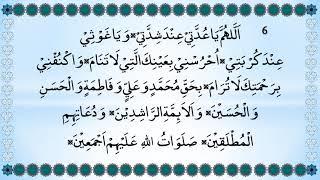 اَللّٰهُمَّ يَاعُدَّتِيْ عِنْدَشِدَّتِيْ * وَيَاغَوْثِيْ 6
عِنْدَكُرْبَتِيْ * اُحْرُسْنِيْ بِعَيْنِكَ الَّتِيْ لَاتَنَامُ * وَاكْنُفْنِيْ
بِرَحْمَتِكَ لَاتُرَامُ * بِحَقِّ مُحَمَّدٍ وَعَلِيٍّ وَفَاطِمَةَ وَالْحَسَنِ
وَالْحُسَيْنِ * وَالْاَئِمَّةِ الرَّاشِدِيْنَ * وَدُعَاتِهِمِ
الْمُطْلَقِيْنَ * صَلَوَاتُ اللهِ عَلَيْهِمْ اَجْمَعِيْنَ *